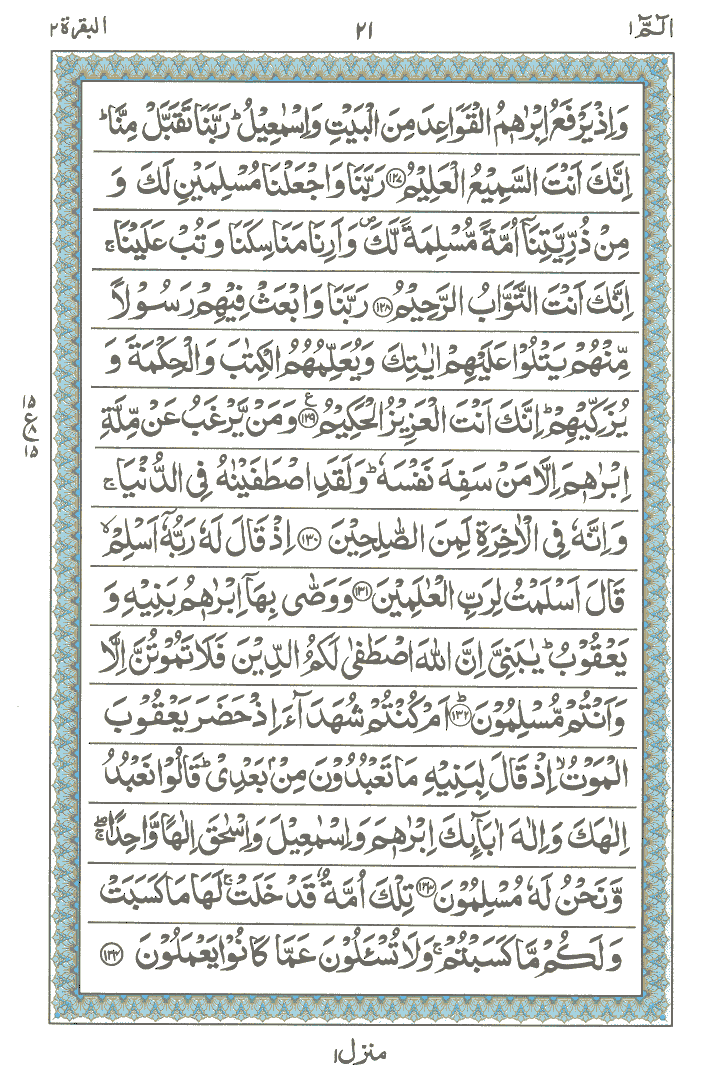 الٓمّٓ ١ ٢١ البقرة ٢
وَاِذْ يَرْفَعُ اِبْرٰهٖمُ الْقَوَاعِدَ مِنَ الْبَيْتِ وَاِسْمٰعِيْلُ ؕ رَبَّنَا تَقَبَّلْ مِنَّا ؕ
اِنَّكَ اَنْتَ السَّمِيْعُ الْعَلِيْمُ ﴿١٢٧﴾ رَبَّنَا وَاجْعَلْنَا مُسْلِمَيْنِ لَكَ وَ
مِنْ ذُرِّيَّتِنَاۤ اُمَّةً مُّسْلِمَةً لَّكَ ۪ وَاَرِنَا مَنَاسِكَنَا وَتُبْ عَلَيْنَا ۚ
اِنَّكَ اَنْتَ التَّوَّابُ الرَّحِيْمُ ﴿١٢٨﴾ رَبَّنَا وَابْعَثْ فِيْهِمْ رَسُوْلًا
مِّنْهُمْ يَتْلُوْا عَلَيْهِمْ اٰيٰتِكَ وَيُعَلِّمُهُمُ الْكِتٰبَ وَالْحِكْمَةَ وَ
يُزَكِّيْهِمْ ؕ اِنَّكَ اَنْتَ الْعَزِيْزُ الْحَكِيْمُ ﴿١٢٩﴾ ع وَمَنْ يَّرْغَبُ عَنْ مِّلَّةِ
١٥
ع ٨
١٥
اِبْرٰهٖمَ اِلَّا مَنْ سَفِهَ نَفْسَهٗ ؕ وَلَقَدِ اصْطَفَيْنٰهُ فِى الدُّنْيَا ۚ
وَاِنَّهٗ فِى الْاٰخِرَةِ لَمِنَ الصّٰلِحِيْنَ ﴿١٣٠﴾ اِذْ قَالَ لَهٗ رَبُّهٗۤ اَسْلِمْ ۙ
قَالَ اَسْلَمْتُ لِرَبِّ الْعٰلَمِيْنَ ﴿١٣١﴾ وَوَصّٰى بِهَاۤ اِبْرٰهٖمُ بَنِيْهِ وَ
يَعْقُوْبُ ؕ يٰبَنِىَّ اِنَّ اللّٰهَ اصْطَفٰى لَكُمُ الدِّيْنَ فَلَا تَمُوْتُنَّ اِلَّا
وَاَنْتُمْ مُّسْلِمُوْنَ ﴿١٣٢﴾ ؕ اَمْ كُنْتُمْ شُهَدَآءَ اِذْ حَضَرَ يَعْقُوْبَ
الْمَوْتُ ۙ اِذْ قَالَ لِبَنِيْهِ مَا تَعْبُدُوْنَ مِنْۢ بَعْدِىْ ؕ قَالُوْا نَعْبُدُ
اِلٰهَكَ وَاِلٰهَ اٰبَآئِكَ اِبْرٰهٖمَ وَاِسْمٰعِيْلَ وَاِسْحٰقَ اِلٰهًا وَّاحِدًا ۖۚ
وَّنَحْنُ لَهٗ مُسْلِمُوْنَ ﴿١٣٣﴾ تِلْكَ اُمَّةٌ قَدْ خَلَتْ ۚ لَهَا مَا كَسَبَتْ
وَلَكُمْ مَّا كَسَبْتُمْ ۚ وَلَا تُسْـَٔلُوْنَ عَمَّا كَانُوْا يَعْمَلُوْنَ ﴿١٣٤﴾
منزل ١